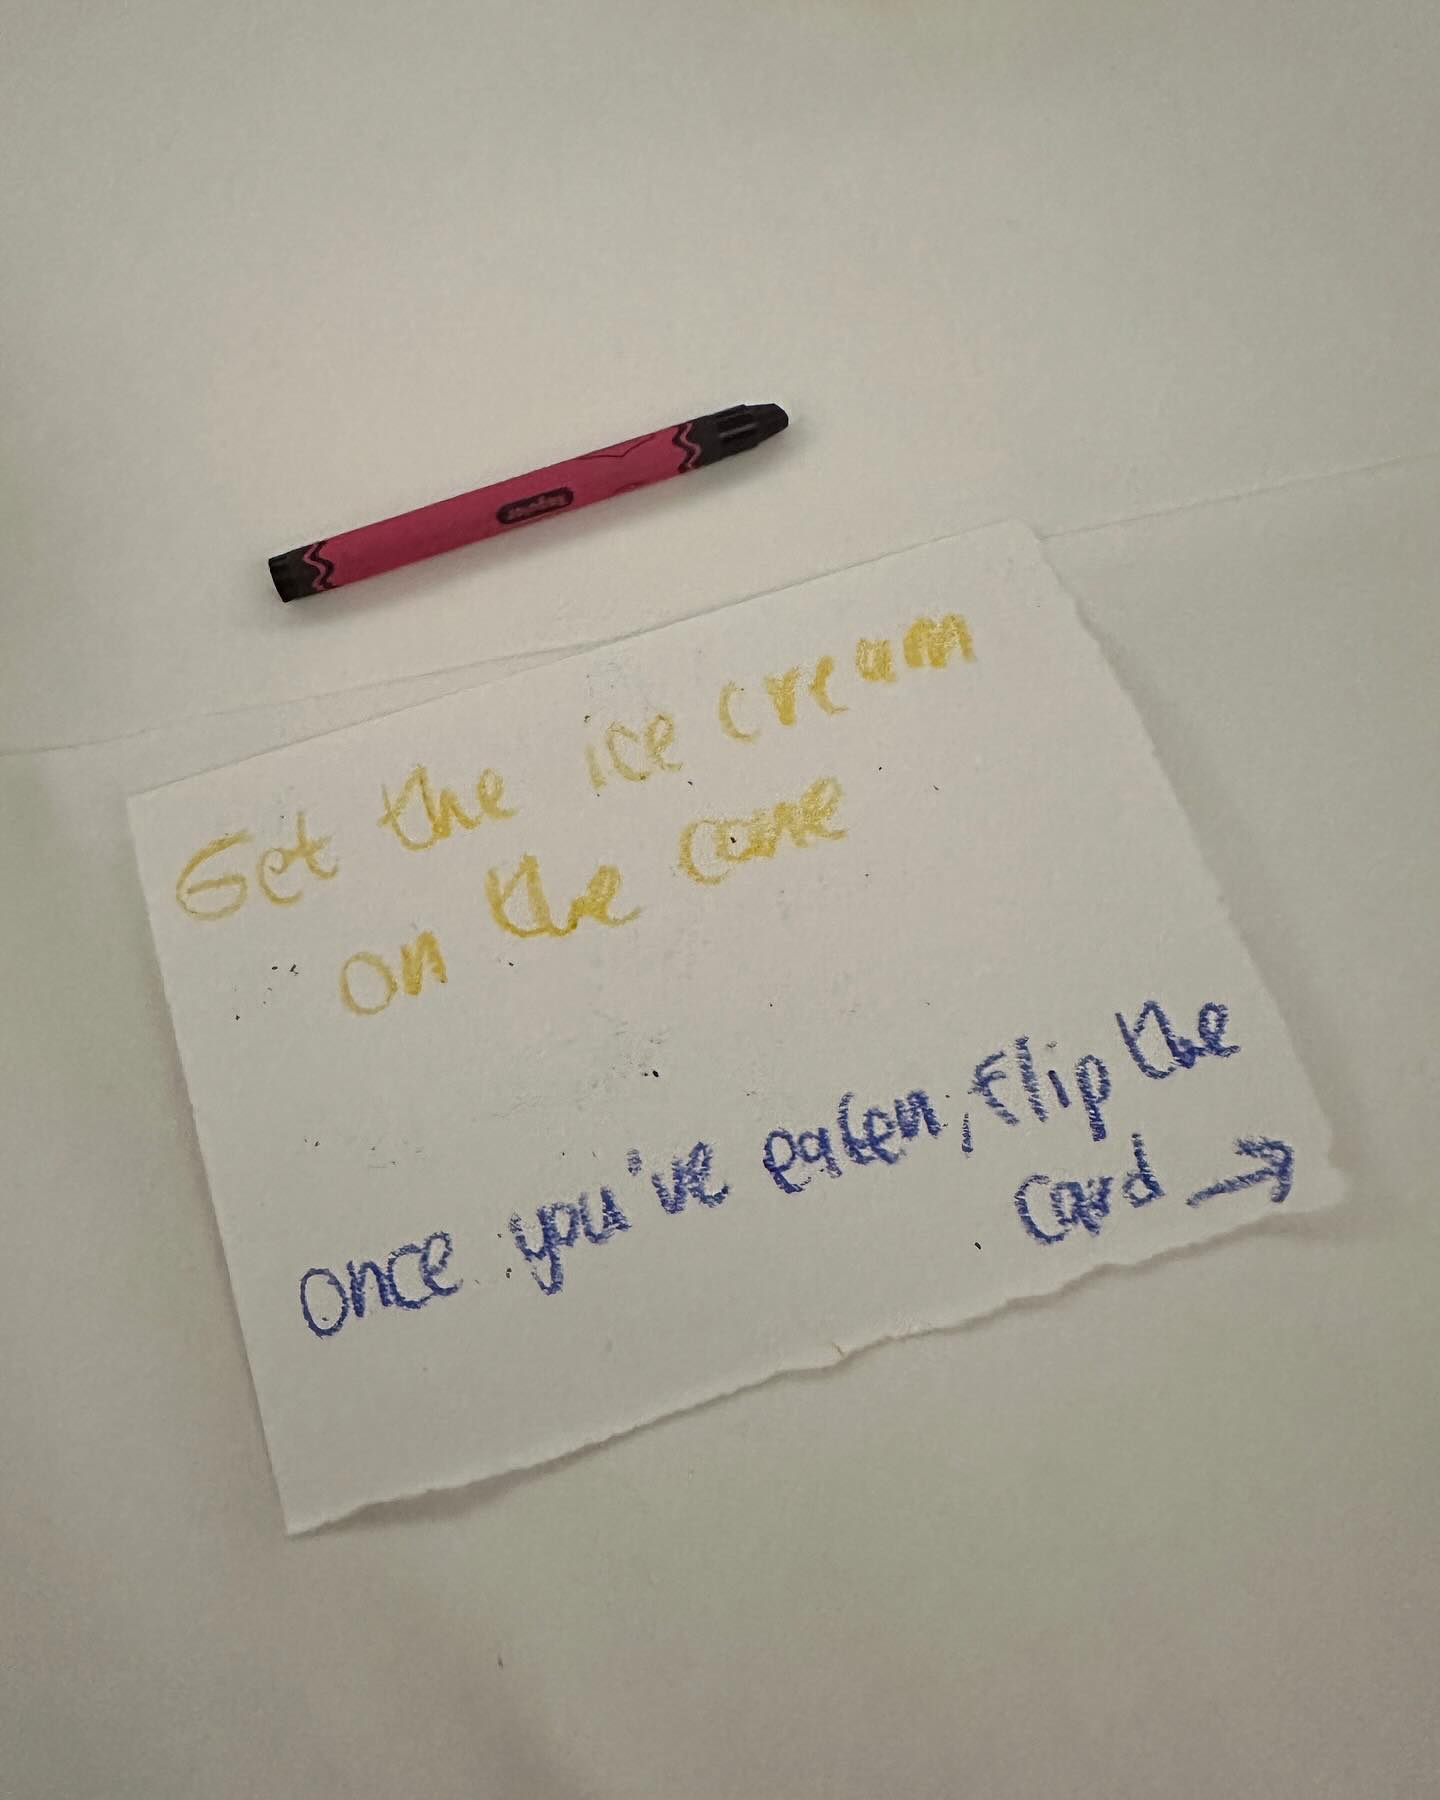 Get the ice cream
on the cone
once you've eaten, flip the
card →